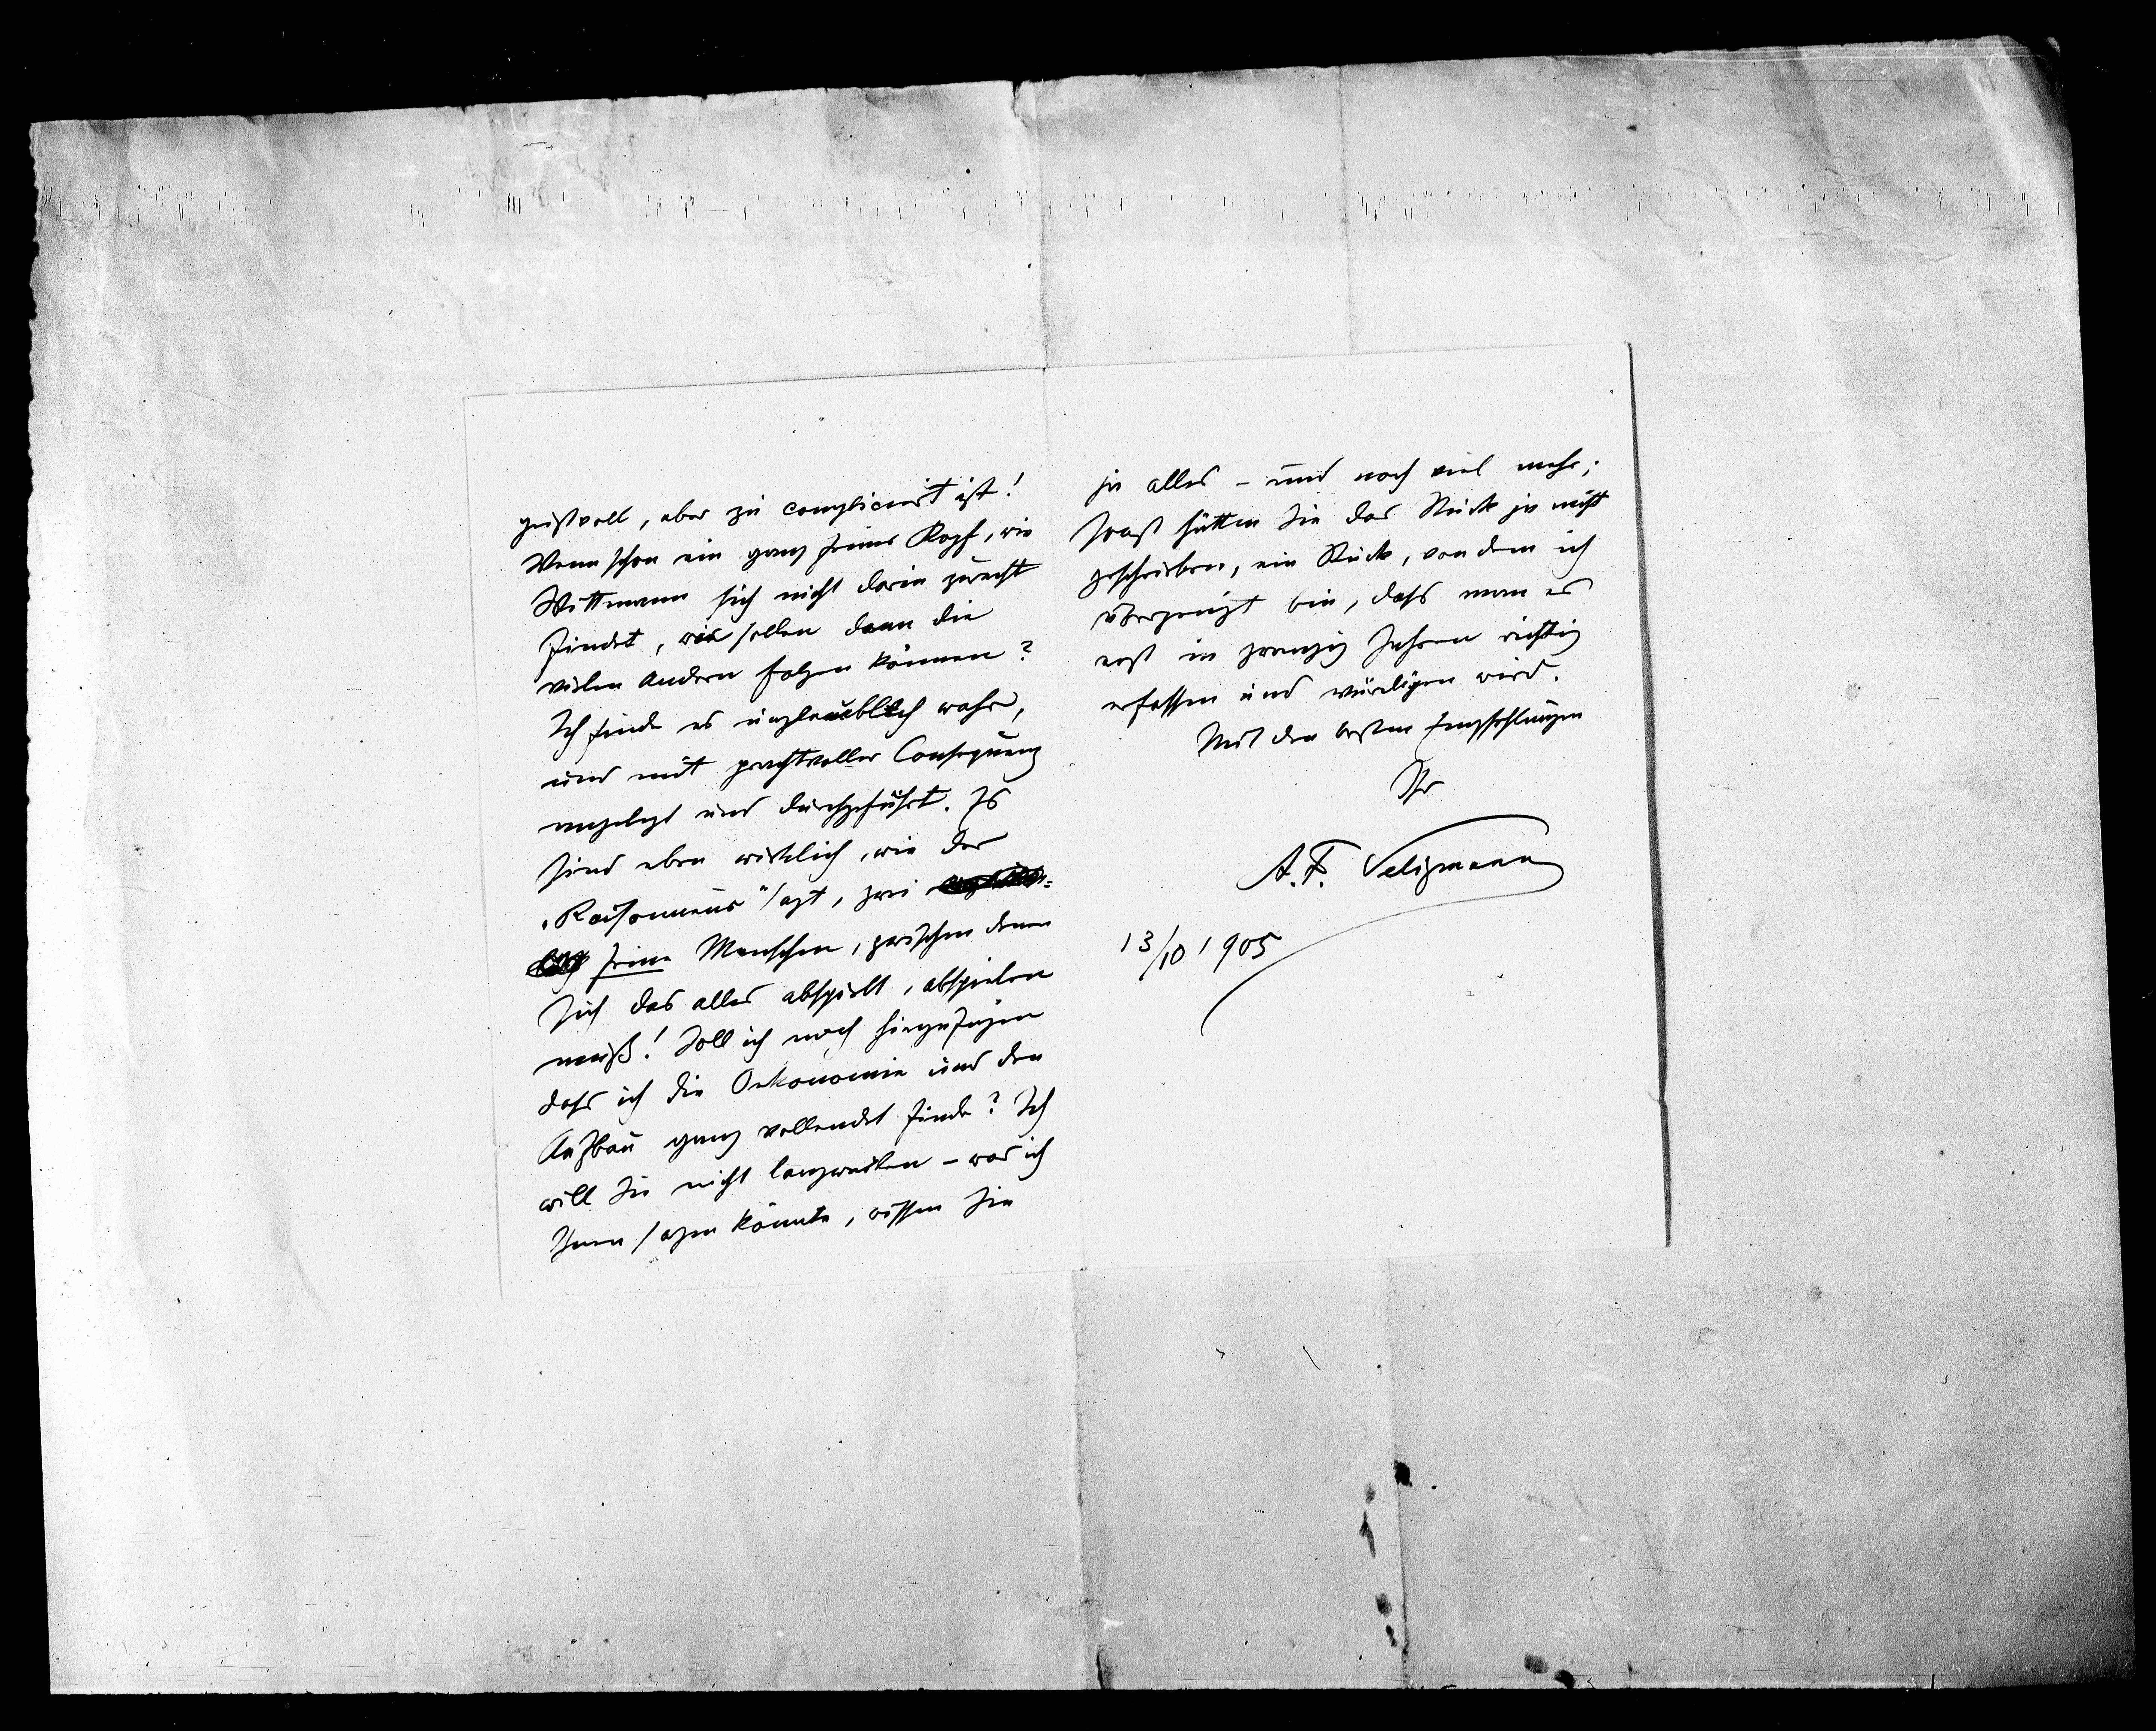 geistvoll, aber zu complicirt ist!
Wenn schon ein ganz feiner Kopf, wie
Wittmann sich nicht darin zurecht
findet, wie sollen dann die
vielen Andern folgen können?
Ich finde es unglaublich wahr,
und mit prachtvoller Consequenz
angelegt und durchgeführt. Es
sind eben wirklich, wie der
„Raisonneur“ sagt, zwei
feine Menschen, zwischen denen
sich das alles abspielt, abspielen
muß! Soll ich noch hinzufügen
dass ich die Oekonomie und den
Aufbau ganz vollendet finde? Ich
will Sie nicht langweilen – was ich
Ihnen sagen könnte, wissen Sie
ja alles – und noch viel mehr;
sonst hätten Sie das Stück ja nicht
geschrieben, ein Stück, von dem ich
überzeugt bin, dass man es
erst in zwanzig Jahren richtig
erfassen und würdigen wird.
Mit den besten Empfehlungen
Ihr
A. F. Seligmann
13/10 1905